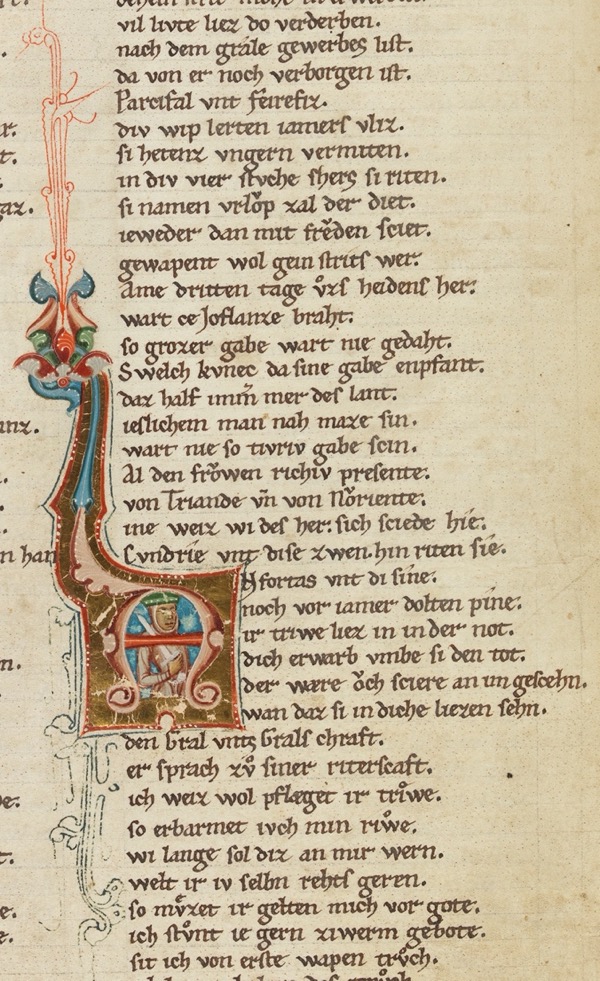 vil livte liez do verderben.
nach dem grale gewerbes list.
da von er noch verborgen ist.
Parcifal vnt feirefiz.
div wip lerten iamers vliz.
si hetenz vngern vermiten.
in div vier stvche shers si riten.
si namen vrlo̊p zal der diet.
ieweder dan mit frev̊den sciet.
gewapent wol gein strits wer.
Ame dritten tage v̊zs heidens her:
wart ce Joflanze braht:
so grozer gabe wart nie gedaht.
Swelch kvnec da sine gabe enpfant.
daz half imm̄ mer des lant.
ieslichem man nah maze sin.
wart nie so tivriv gabe scin.
Al den fro̊wen richiv presente:
von Triande vn̄ von No̊riente:
ine weiz wi des her: sich sciede hie:
n han
Cvndrie vnt dise zwen. hin riten sie.
Anfortas vnt di sine.
noch vor iamer dolten pine.
ir triwe liez in in der not.
dich erwarb vmbe si den tot.
der wære o̊ch sciere an im gescehn.
wan daz si in diche liezen sehn.
den Gral vnts Grals chraft.
er sprach zv̊ siner riterscaft.
ich weiz wol pflæget ir triwe.
so erbarmet ivch min riwe.
wi lange sol diz an mir wern.
welt ir iv selbn rehts geren.
so mv̊zet ir gelten mich vor gote.
ich stv̊nt ie gern ziwerm gebote.
sit ich von erste wapen trv̊ch.